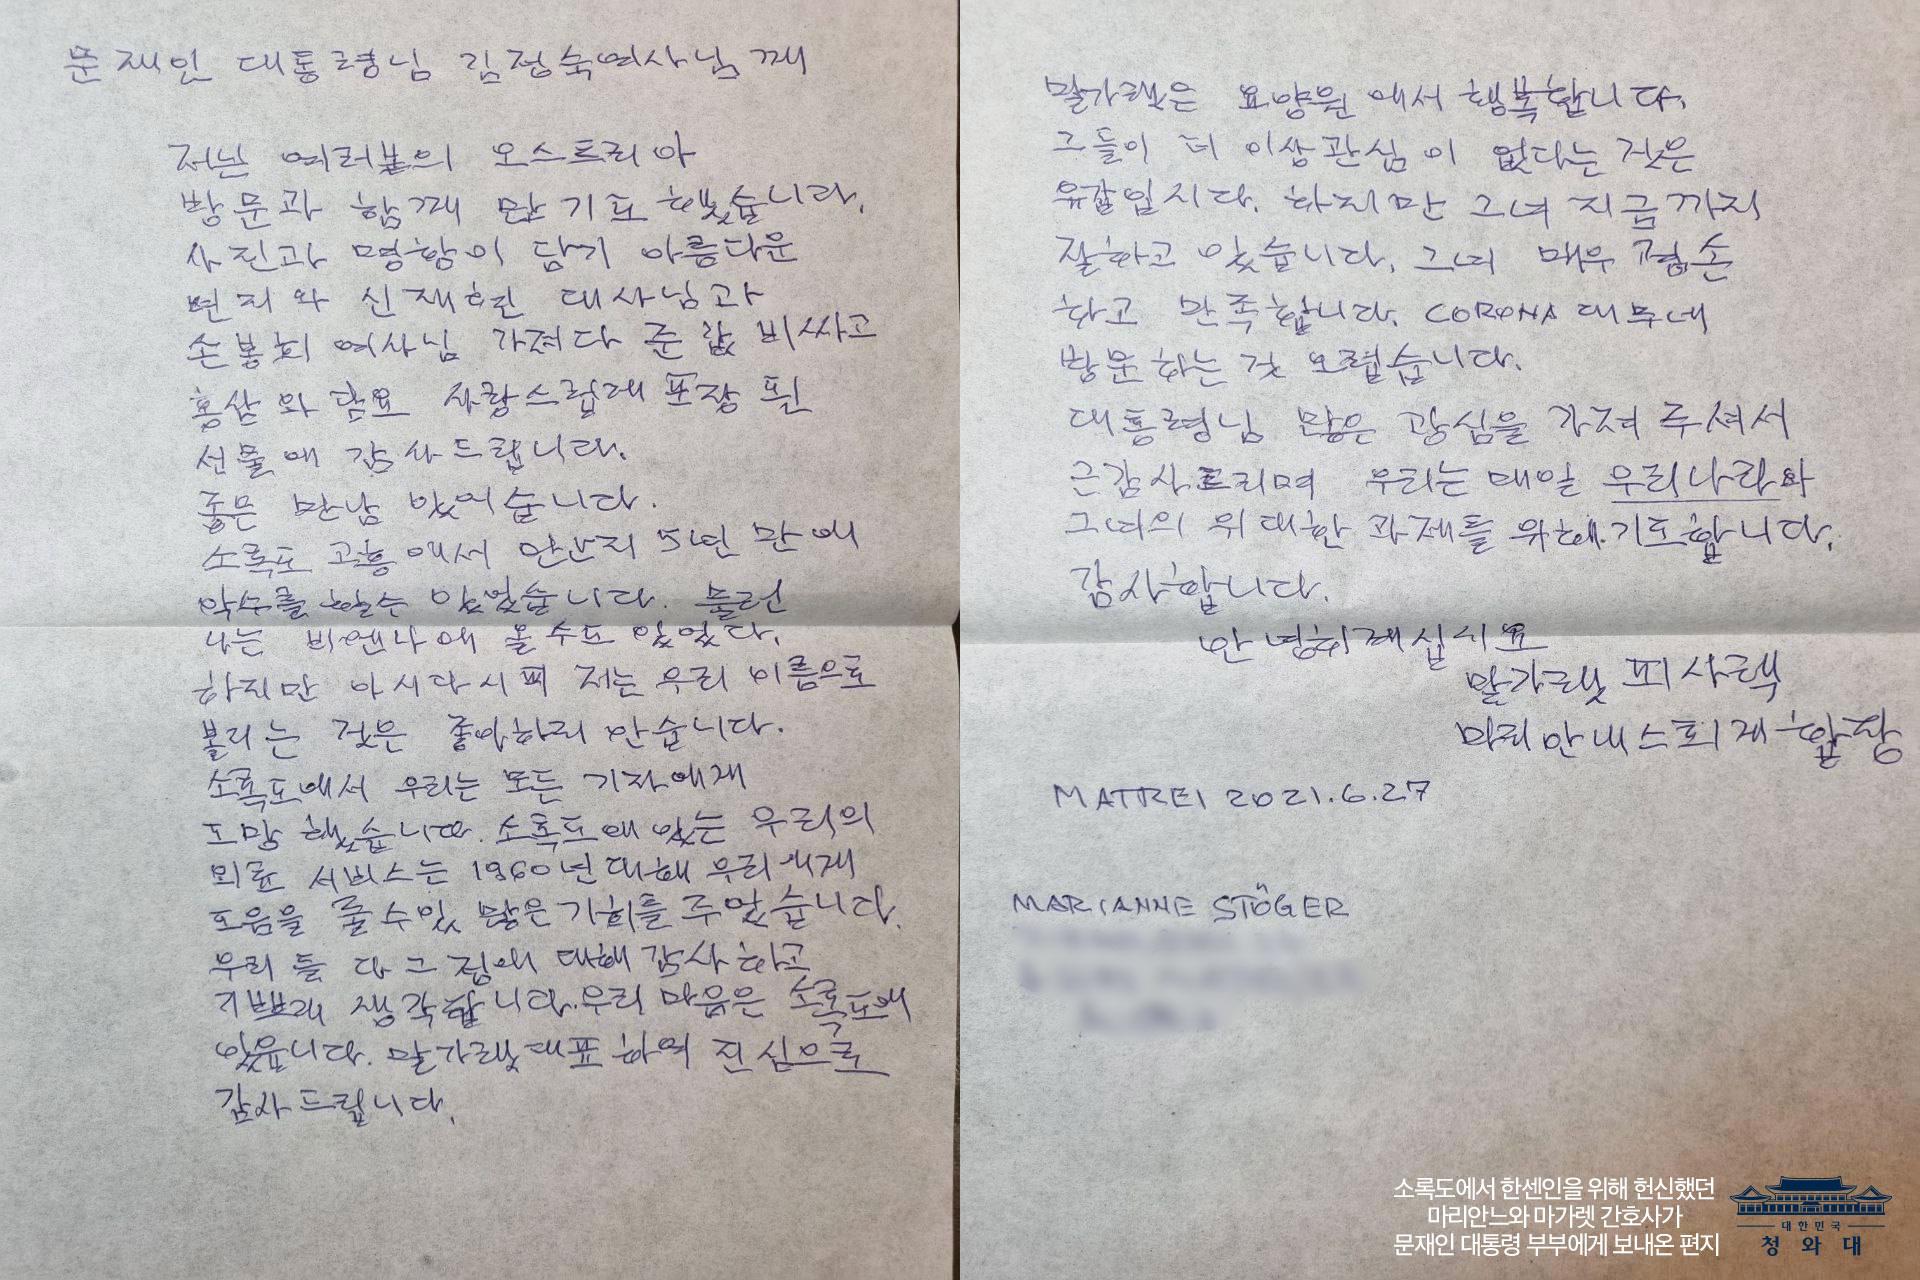 문재인 대통령님 김정숙여사님 께
저는 여러분의 오스트리아
방문과 함께 많 기도 했습니다.
사진과 명함이 담기 아름다운
편지와 신재현 대사님과
손봉희 여사님 가져다 준 값 비싸고
홍삼 와 담요 사랑스럽데 포장 된
선물에 감사드립니다.
좋은 만남 있어습니다.
소록도 고흥에서 만난지 5년 만에
악수를 할수 있었습니다. 물런
나는 비엔나에 올 수도 있었다.
하지만 아시다시피 저는 우리 이름으로
불리는 것은 좋아하리 안습니다.
소록도에서 우리는 모든 기자에게
도망 했습니다. 소록도에 있는 우리의
의료 서비스는 1960년 대해 우리게게
도움을 줄 수 있 많은 기회를 주었습니다.
우리 들 다 그 점에 대해 감사 하고
기쁘게 생각합니다. 우리 마음은 소록도에
있읍니다. 말가렛 대표 하여 진심으로
감사드립니다.
말가렛은 요양원에서 행복합니다.
그들이 더 이상관심이 없다는 것은
유감입시다. 하지만 그녀 지금까지
잘하고 있습니다. 그녀 매우 겸손
하고 만족합니다. CORONA 대무네
방문하는 것 오렵습니다.
대통령님 많은 광심을 가져 주셔서
근감사드리며 우리는 매일 우리나라와
그녀의 위대한 과제를 위해.기도합니다.
감사합니다.
안녕히계십시요
말가렛 피사렉
마리안네스퇴거 합장
MATREI 2021.6.27
MARIANNE STÖGER
소록도에서 한센인을 위해 헌신했던
마리안느와 마가렛 간호사가
문재인 대통령 부부에게 보내온 편지
대한민국
청와대